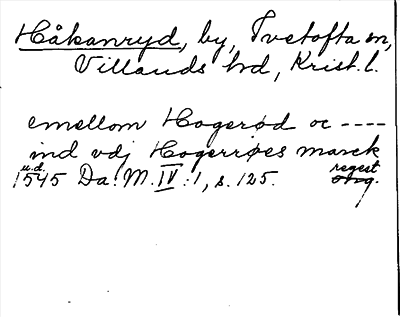 Håkanryd, by, Tvetofta sn,
Villands hd, Krist. l.
emellom Hogerød oc ----
ind vdj Hogerrøes marck
u.d. regest
1545 Da. M. IV:1, s. 125. orig.